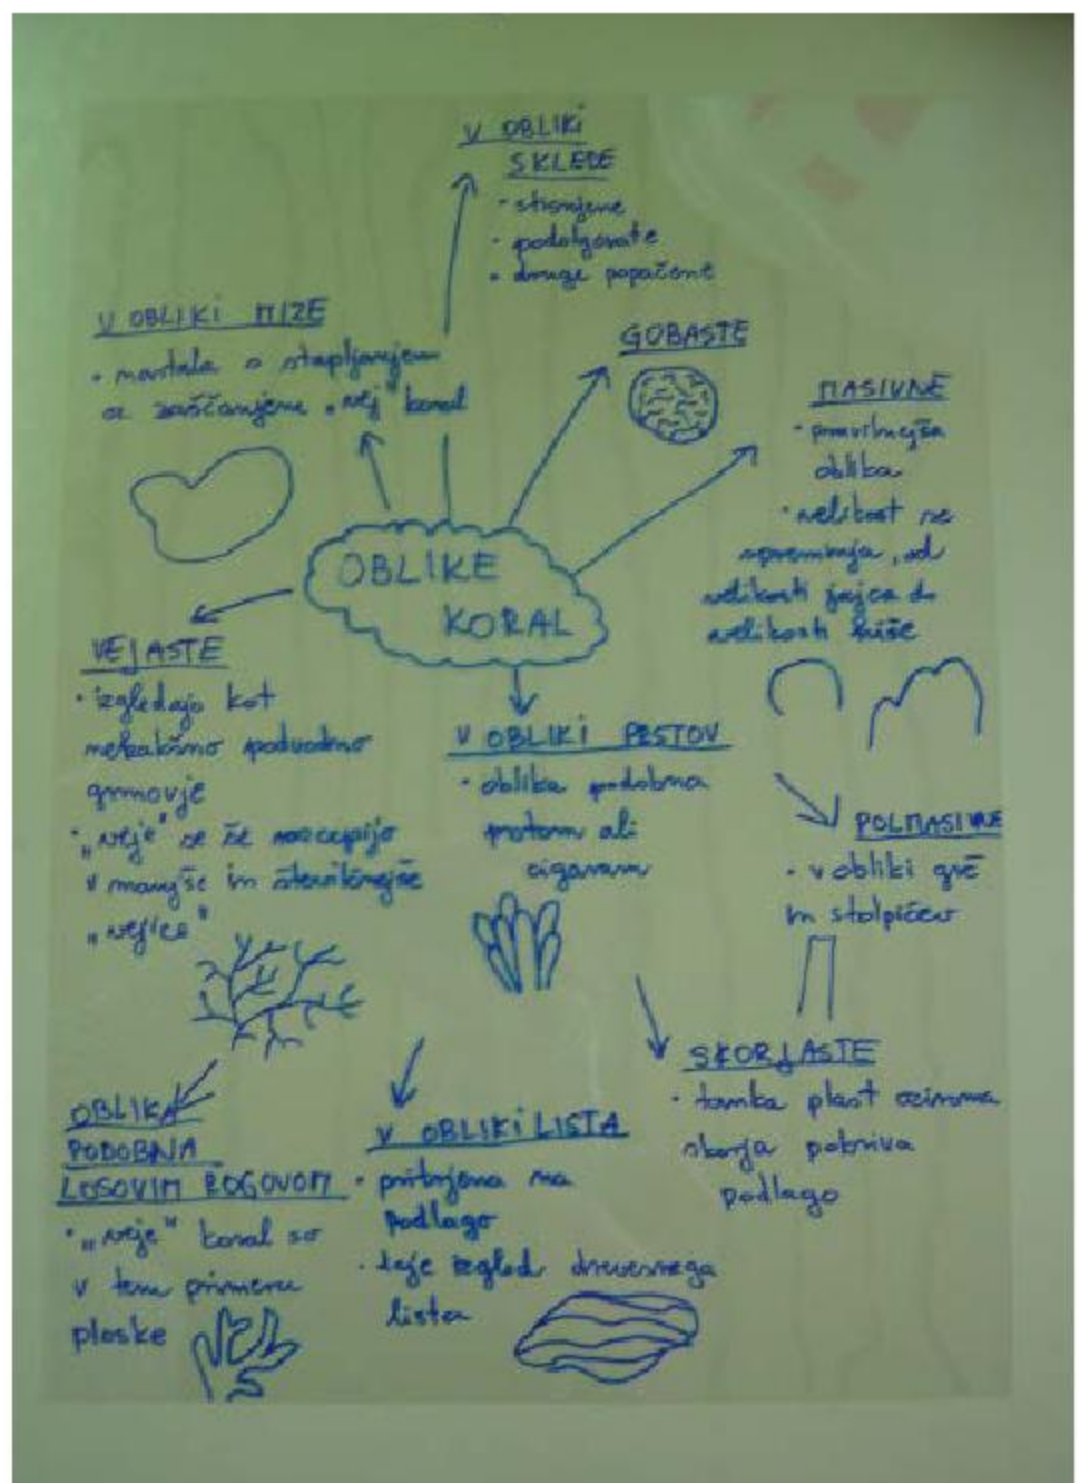 V OBLIKI
SKLEDE
- stisnjene
- podolgovate
- druge popačene
V OBLIKI MIZE
- nastala s stapljanjem
oz zaščanjene "vej" koral
GOBASTE
MASIVNE
- pravilnejša
oblika
- velikost se
spreminja, od
velikosti jajca do
velikosti hiše
OBLIKE
KORAL
VEJASTE
- izgledajo kot
nekakšno podvodno
grmovje
- "veje" se še razcepijo
v manjše in številčnejše
"vejice"
V OBLIKI PRSTOV
- oblika podobna
prstom ali
cigaram
POLMASIVNE
- v obliki grč
in stolpičev
SKORJASTE
- tanka plast oziroma
skorja pokriva
podlago
OBLIKA
PODOBNA
LOSOVIM ROGOVOM
- "veje" koral so
v tem primeru
ploske
V OBLIKI LISTA
- pritrjena na
podlago
- daje izgled drevesnega
lista